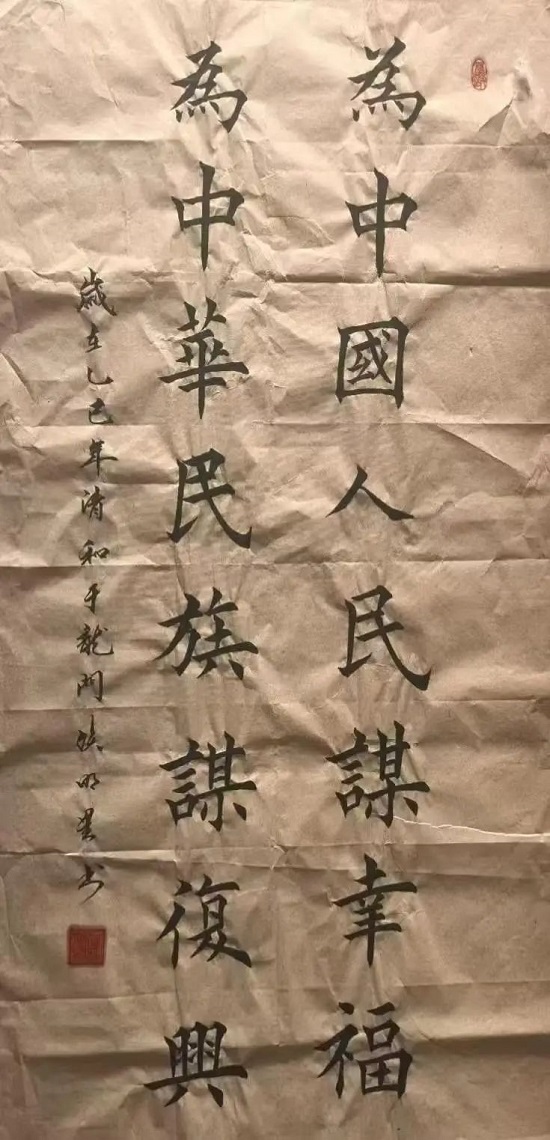 為中國人民謀幸福
為中華民族謀復興
歲在乙巳年清和于龍門明星书